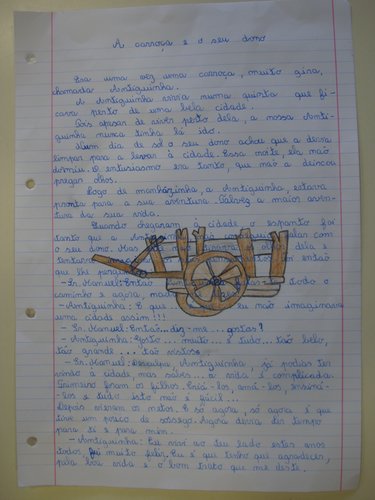 A carroça e o seu dono
Era uma vez uma carroça, muito gira,
chamada Antiguinha.
A Antiguinha vivia numa quinta que fi-
cava perto de uma bela cidade.
Pois apesar de viver perto dela, a nossa Anti-
guinha nunca tinha lá ido.
Num dia de sol o seu dono achou que a devia
limpar para a levar à cidade. Essa noite, ela não
dormiu. O entusiasmo era tanto, que não a deixou
pregar olhos.
Logo de manhãzinha, a Antiguinha, estava
pronta para a sua aventura. Talvez a maior aven-
tura da sua vida.
Quando chegaram à cidade o espanto foi
tanto que a Antiguinha não conseguia falar com
o seu dono. Mas
tentava então
que lhe
- Sr. Manuel: Então todo o
caminho e agora,
- Antiguinha: É que eu não imaginava
uma cidade assim!!!
- Sr. Manuel: Então... diz-me... gostas?
- Antiguinha: Gosto... muito... é tudo... tão belo,
tão grande... tão vistoso...
- Sr. Manuel: Desculpa, Antiguinha, já podias ter
vindo à cidade mas sabes... a vida é complicada.
Primeiro foram os filhos. Criá-los, amá-los, ensiná-
-los e tudo isto não é fácil...
Depois vieram os netos. E só agora, só agora é que
tive um pouco de sossego. Agora devia dar tempo
para ti e para mim.
- Antiguinha: Eu vivi ao teu lado estes anos
todos, fui muito feliz. Eu é que tenho que agradecer,
pela boa vida e o bom trato que me deste.